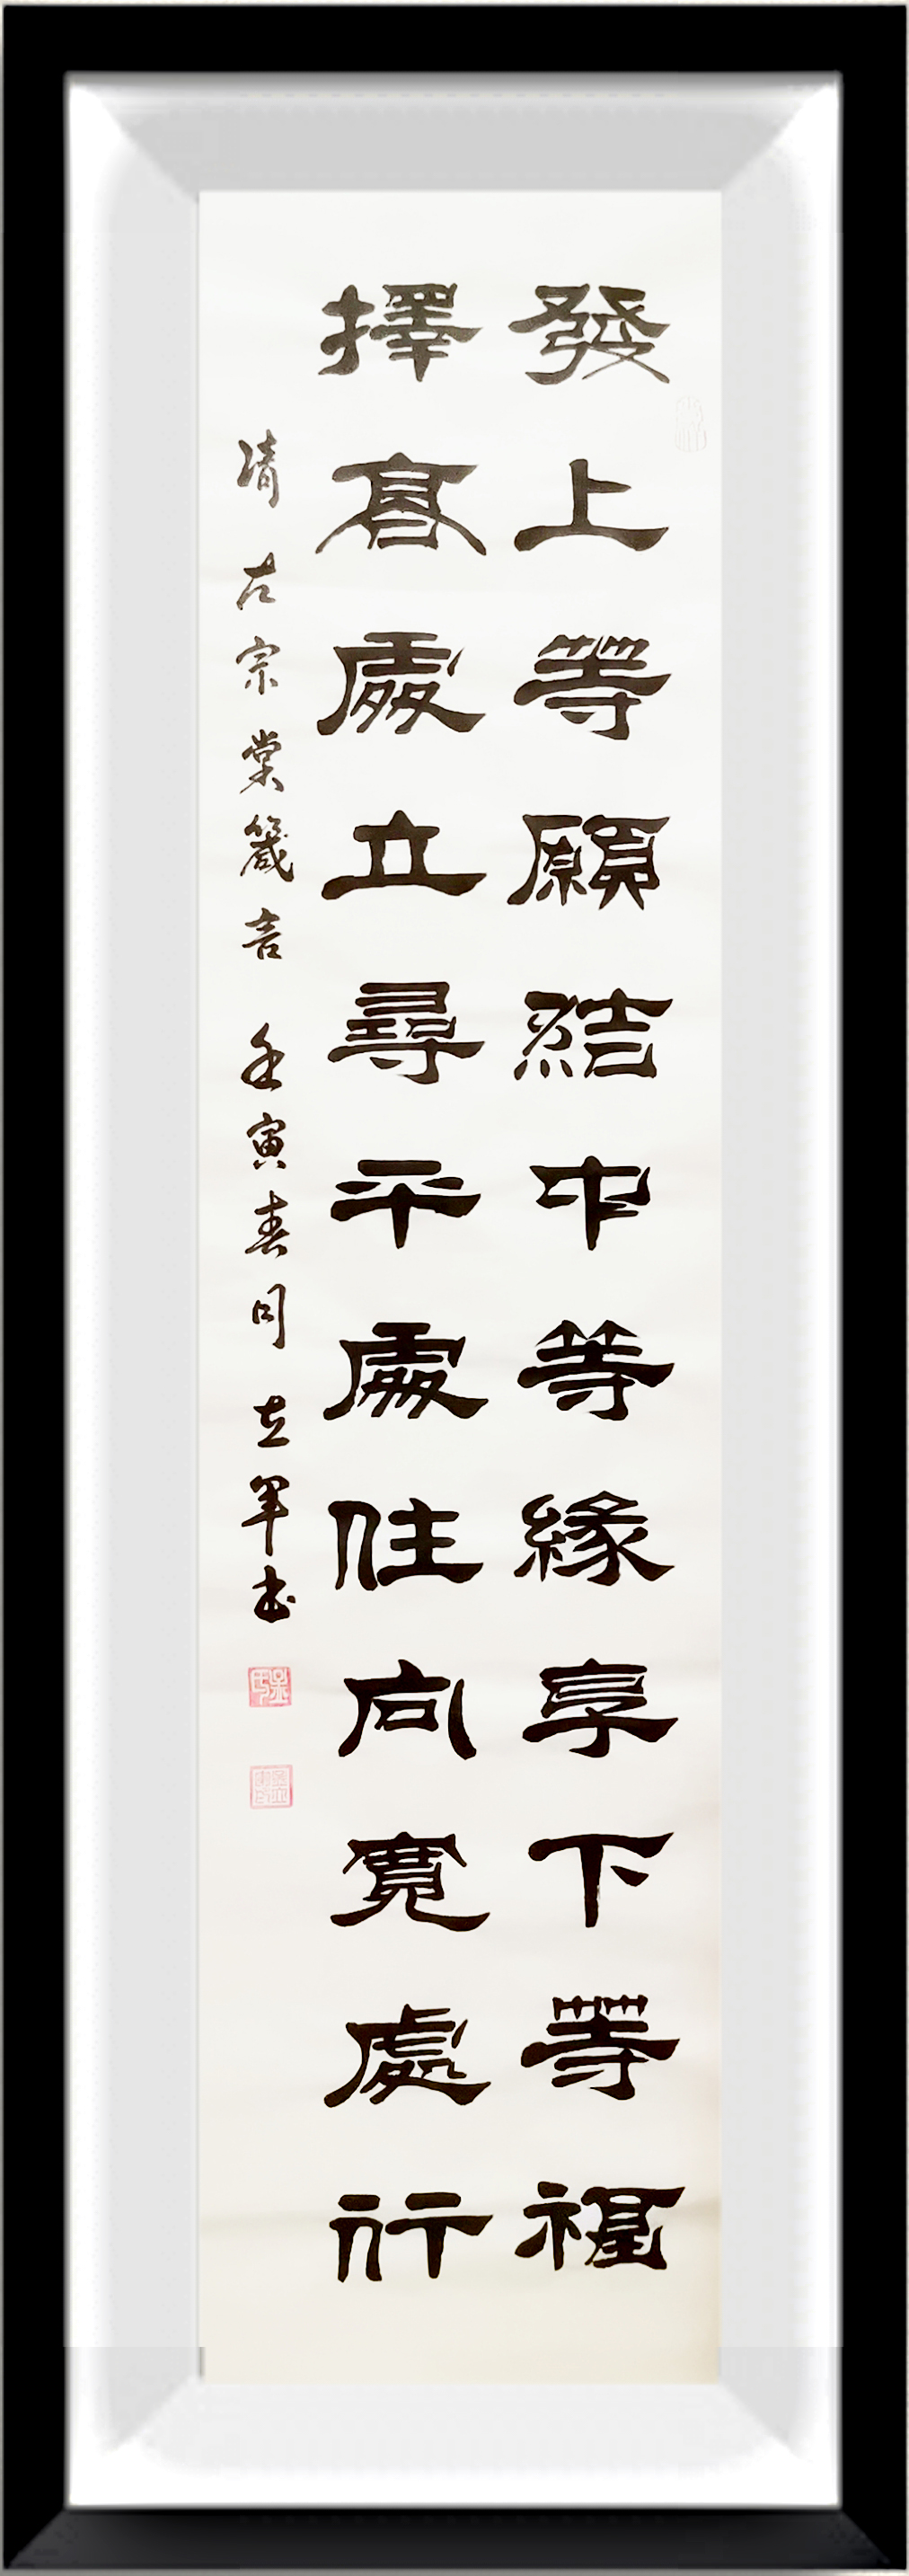 發上等願結中等緣享下等福
擇高處立尋平處住向寬處行
清左宗棠箴言 壬寅春 立軍书